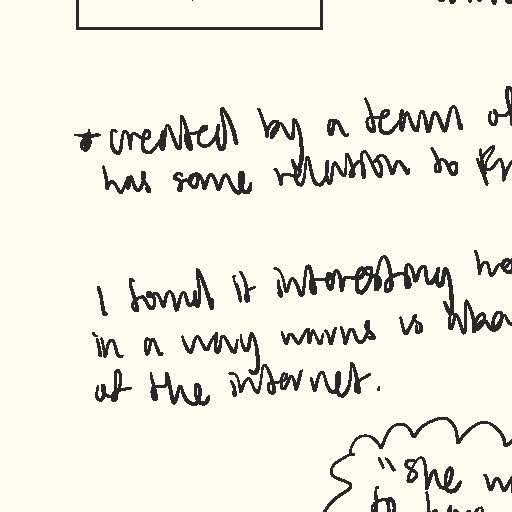 * created by a team of
has some relation to
I found it interesting
in a way is
at the internet.
"she
to